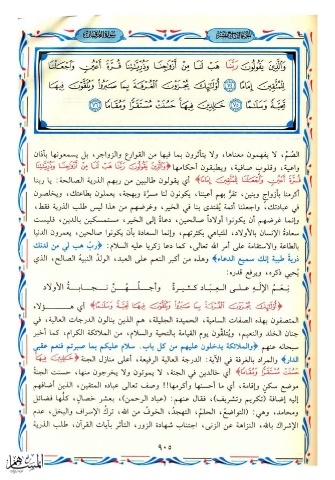 وَالَّذِينَ يَقُولُونَ رَبَّنَا هَبْ لَنَا مِنْ أَزْوَاجِنَا وَذُرِّيَّاتِنَا قُرَّةَ أَعْيُنٍ وَاجْعَلْنَا
لِلْمُتَّقِينَ إِمَامًا ﴿٧٤﴾ أُولَٰئِكَ يُجْزَوْنَ الْغُرْفَةَ بِمَا صَبَرُوا وَيُلَقَّوْنَ فِيهَا
تَحِيَّةً وَسَلَامًا ﴿٧٥﴾ خَالِدِينَ فِيهَا حَسُنَتْ مُسْتَقَرًّا وَمُقَامًا ﴿٧٦﴾
الصُّمِّ، لا يفهمون معناها، ولا يتأثرون بما فيها من القوارع والزواجر، بل يسمعونها بآذان
واعية، وقلوب صافية، ويطبقون أحكامها ﴿وَالَّذِينَ يَقُولُونَ رَبَّنَا هَبْ لَنَا مِنْ أَزْوَاجِنَا وَذُرِّيَّاتِنَا
قُرَّةَ أَعْيُنٍ وَاجْعَلْنَا لِلْمُتَّقِينَ إِمَامًا﴾ أي يقولون طالبين من ربهم الذرية الصالحة: يا ربنا
أكرمنا بأزواج وبنين، تقرُّ بهم أعيننا، يكونون لنا مسرَّة وبهجة، يعملون بطاعتك، ويخلصون
في عبادتك، واجعلنا أئمة يُقتدى بنا في الخير، وغرضهم من هذا ليس طلب الذرية فقط،
وإنما غرضهم أن يكونوا أولاداً صالحين، دعاةً إلى الخير، مستمسكين بالدين، فليست
سعادةُ الإنسان بالأولاد، للتباهي بكثرتهم، وإنما السعادة بأن يكونوا صالحين، يعمرون الدنيا
بالطاعة والاستقامة على أمر الله تعالى، كما دعا زكريا عليه السلام: ﴿ربِّ هب لي من لدنك
ذريةً طيبة إنك سميع الدعاء﴾ وهذه من أكبر النعم على العبد، الولدُ النبيهُ الصالح، الذي
يُحيي ذكره، ويرفع قدره:
نِعَمُ الإلهِ على العبادِ كثيرةٌ وأجلُّهنَّ نجابةُ الأولاد
﴿أُولَٰئِكَ يُجْزَوْنَ الْغُرْفَةَ بِمَا صَبَرُوا وَيُلَقَّوْنَ فِيهَا تَحِيَّةً وَسَلَامًا﴾ أي هؤلاء،
المتصفون بهذه الصفات السامية، الحميدة الجليلة، هم الذين ينالون الدرجات العالية، في
جنان الخلد والنعيم، ويُتلقَّون يوم القيامة بالتحية والسلام، من الملائكة الكرام، كما أخبر
سبحانه عنهم ﴿والملائكة يدخلون عليهم من كل باب. سلام عليكم بما صبرتم فنعم عقبى
الدار﴾ والمراد بالغرفة في الآية: الدرجة العالية الرفيعة، أعلى منازل الجنة ﴿خَالِدِينَ فِيهَا
حَسُنَتْ مُسْتَقَرًّا وَمُقَامًا﴾ أي خالدين في الجنة، لا يموتون ولا يخرجون منها، حسنت الجنةُ
موضع سكنٍ وإقامة، أي ما أحسنها وأكرمها!! وصف تعالى عباده المتقين، الذين أضافهم
إليه إضافة (تكريم وتشريف)، فقال عنهم: (عباد الرحمن)، بعشر خصالٍ، كلُّها فضائل
ومحامد، وهي: (التواضعُ، الحلمُ، التهجدُ، الخوفُ من الله، تركُ الإسراف والبخل، عدم
الإشراك بالله، النزاهة عن الزنى، اجتناب شهادة الزور، التأثر بآيات القرآن، طلب الذرية
٩٠٥